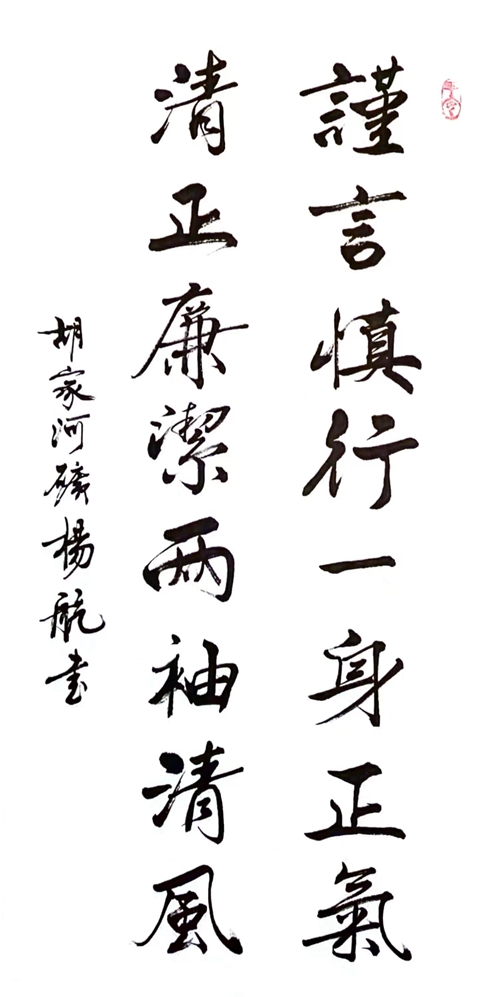 謹言慎行一身正氣
清正廉潔两袖清風
胡家河礦楊航書